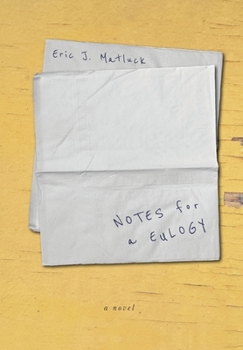 Eric J. Matluck
NOTES for
a EULOGY
a novel